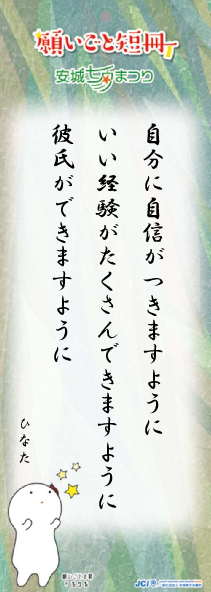 願いごと短冊
安城七夕まつり
自分に自信がつきますように
いい経験がたくさんできますように
彼氏ができますように
ひなた
JCI